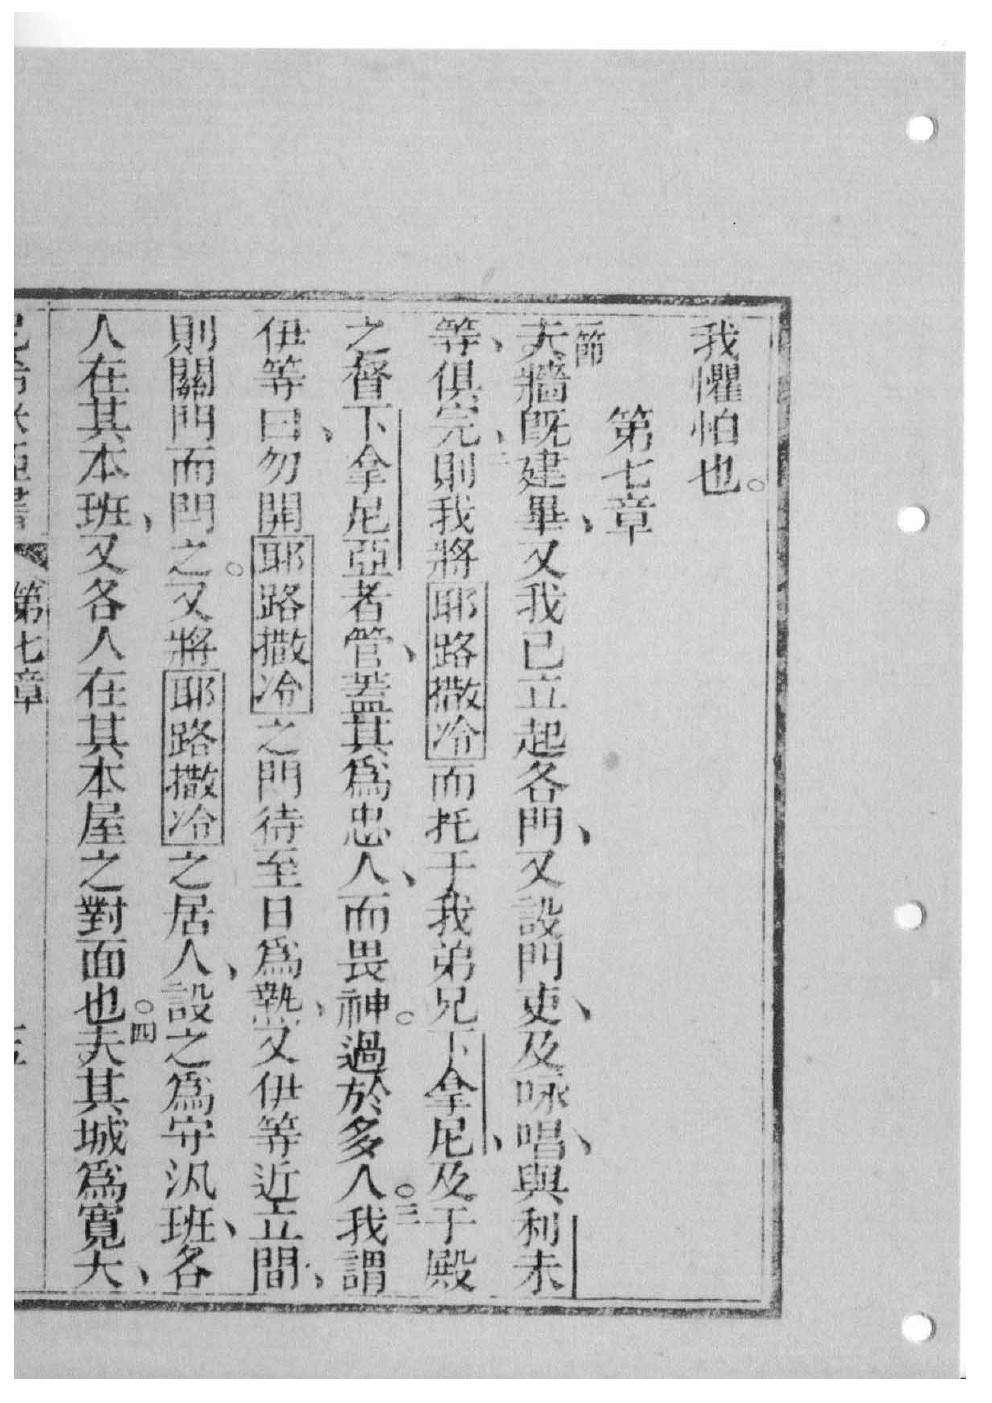 我懼怕也。
第七章
一節夫牆旣建畢、又我已立起各門、又設門吏、及咏唱、與利未
等、俱完、二則我將耶路撒冷而托于我弟兄下拿尼、及于殿
之督下拿尼亞者管、蓋其爲忠人、而畏神。過於多人。三我謂
伊等曰、勿開耶路撒冷之門待至日爲熱、又伊等近立間、
則關門而閂之。又將耶路撒冷之居人、設之爲守汛班、各
人在其本班、又各人在其本屋之對面也。四夫其城爲寬大、
第七章